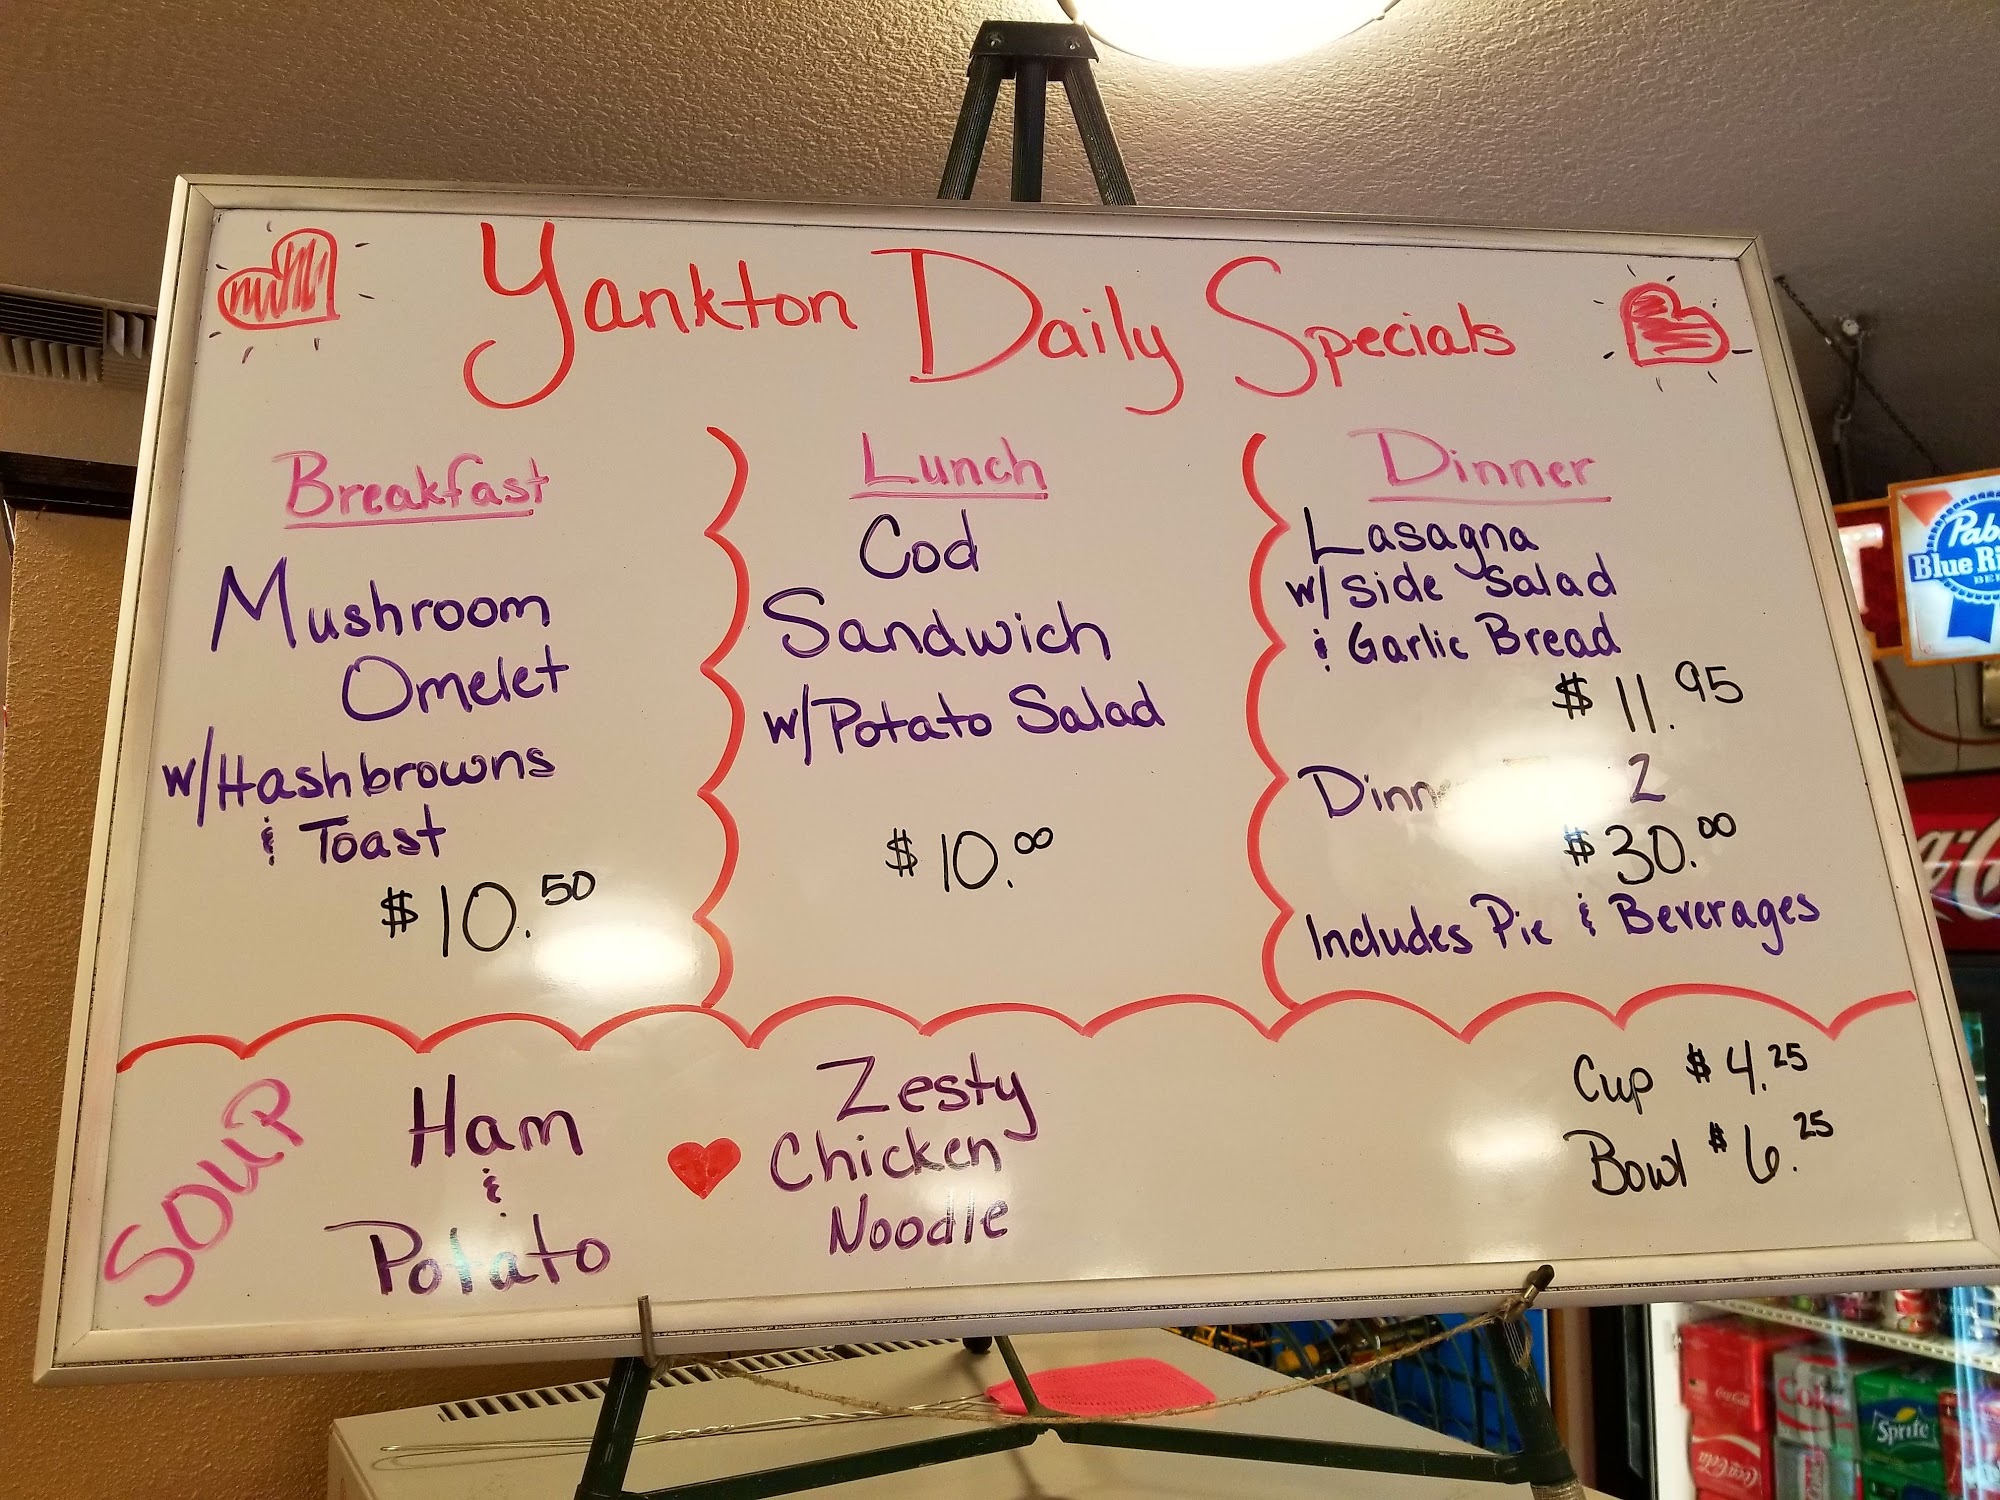 Yankton Daily Specials
Breakfast
Mushroom
Omelet
w/Hashbrowns
& Toast
$10.50
Lunch
Cod
Sandwich
w/Potato Salad
$10.00
Dinner
Lasagna
w/ Side Salad
& Garlic Bread
$11.95
2
$30.00
Includes Pie & Beverages
SOUP
Ham
&
Potato
Zesty
Chicken
Noodle
Cup $4.25
Bowl $6.25
Blue
Coca-Cola
Coke
Sprite
Coca-Cola